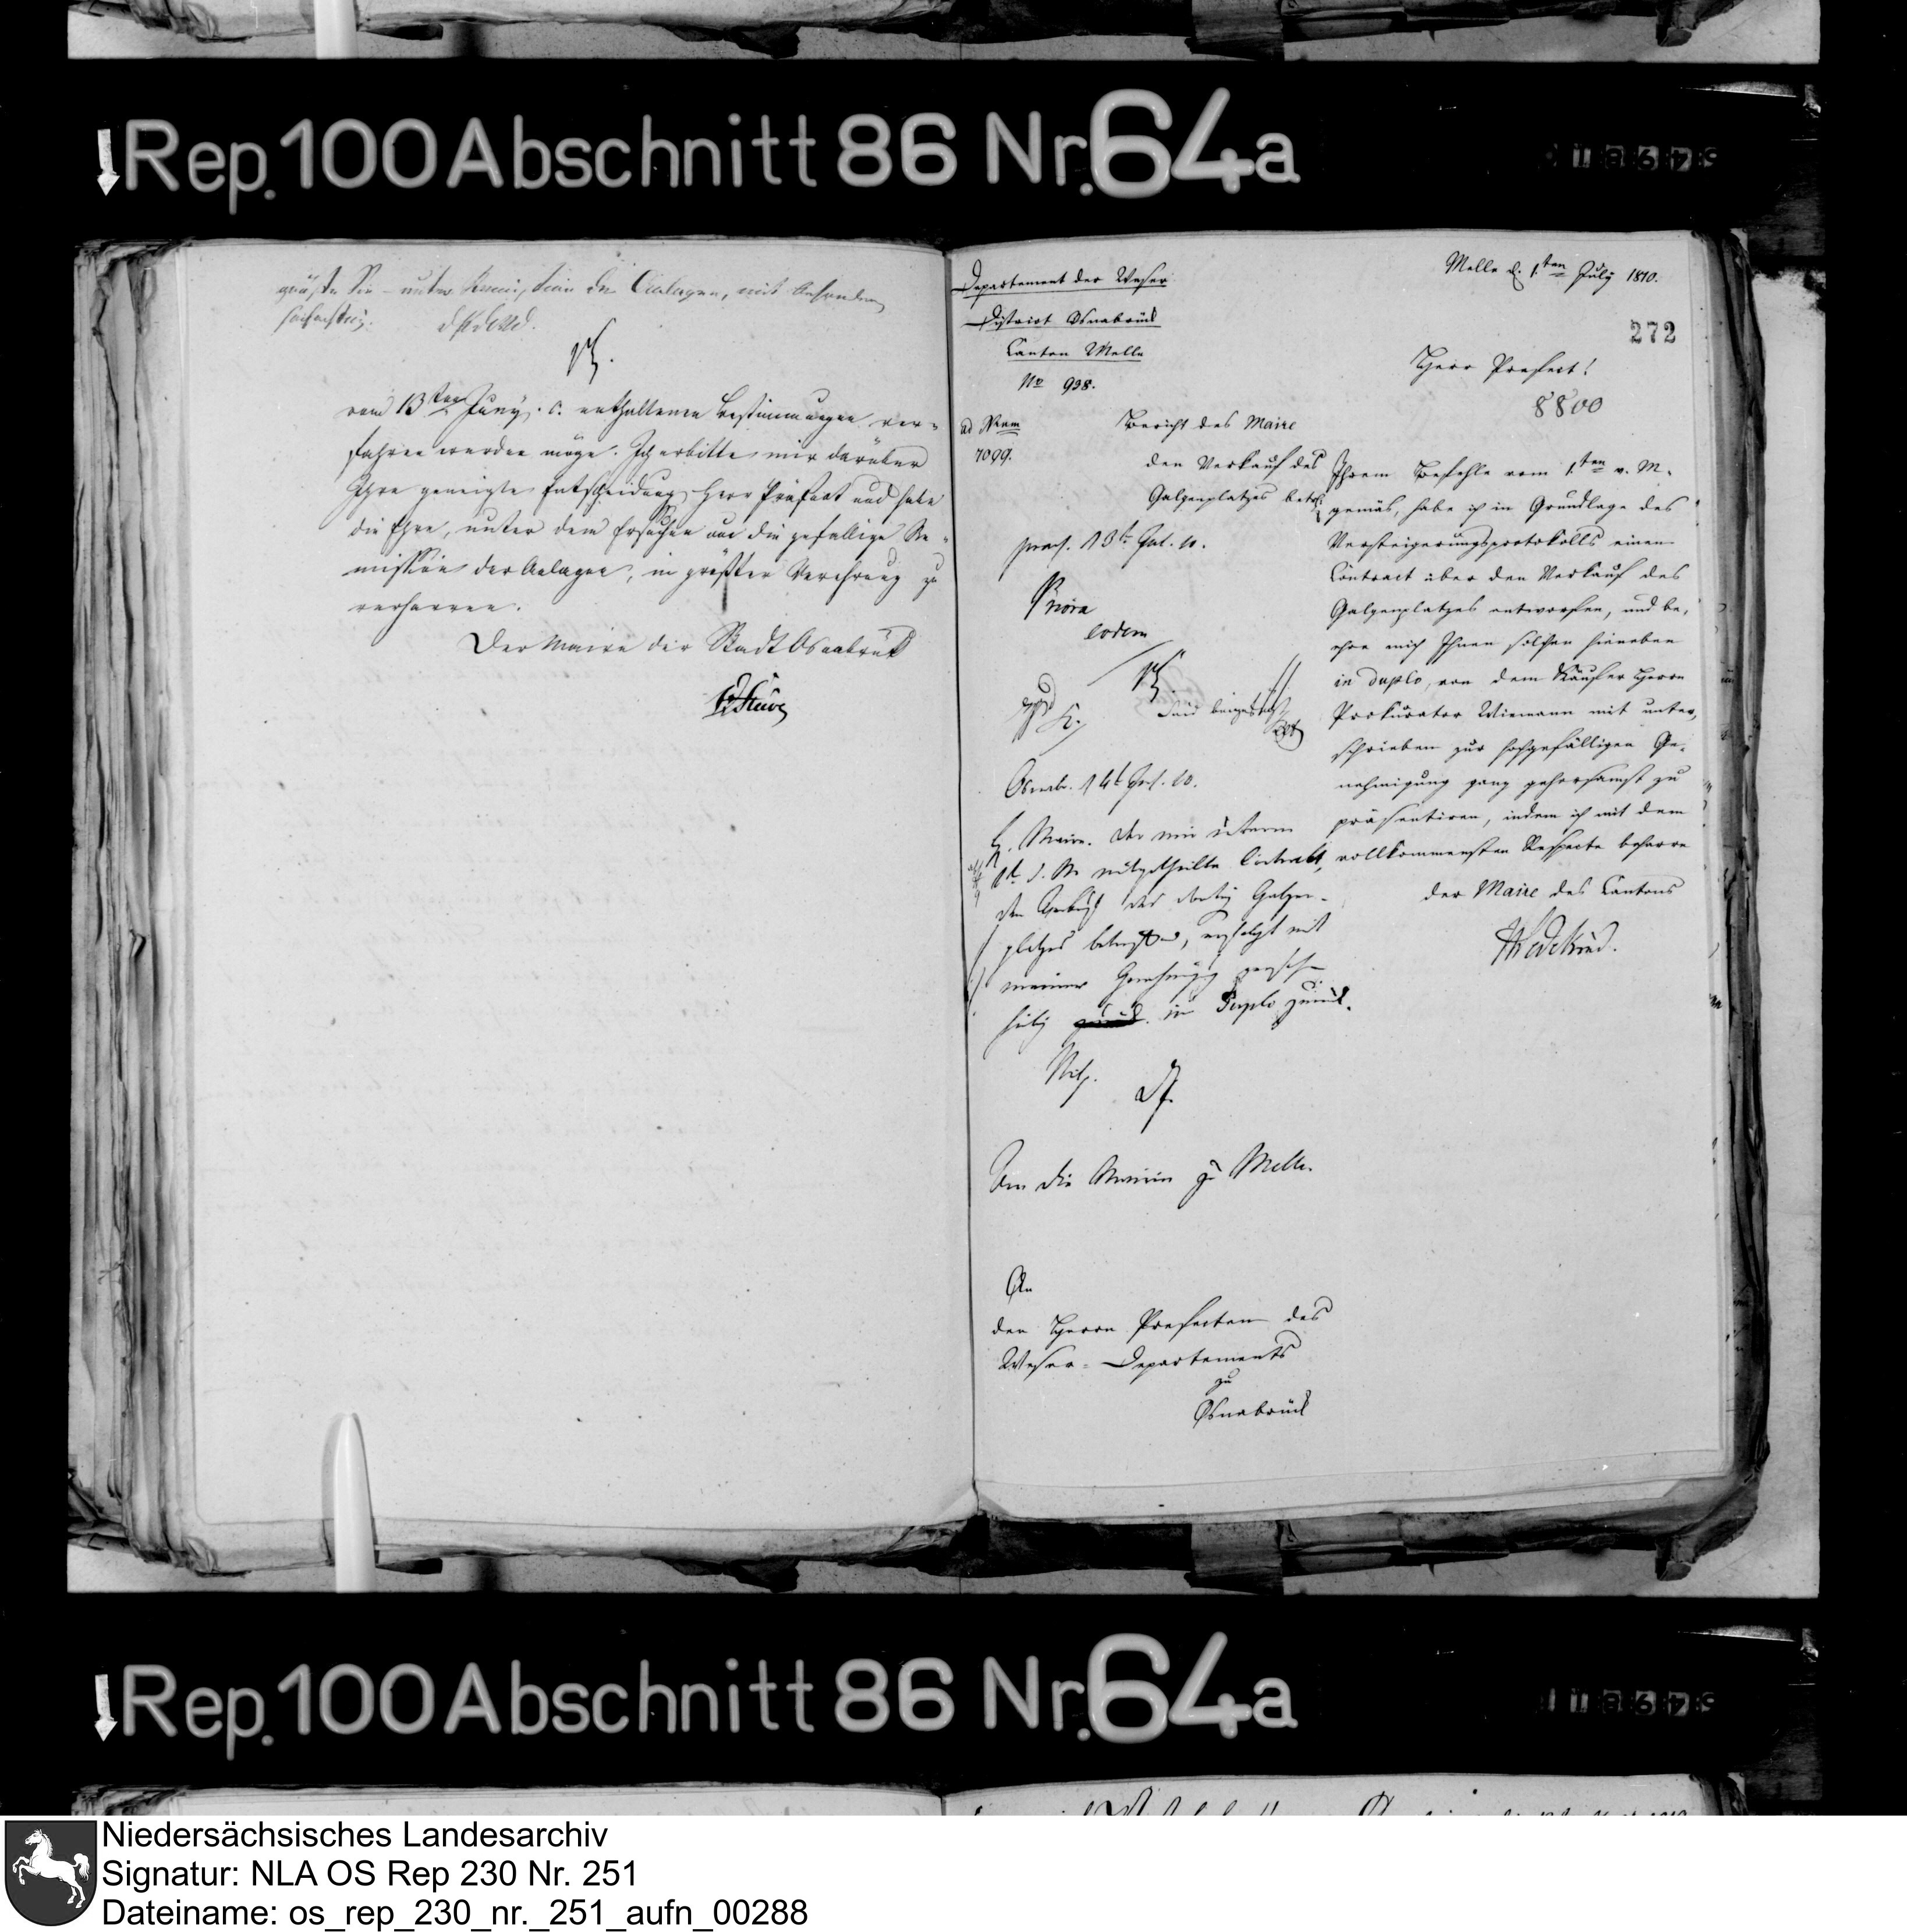 Rep. 100 Abschnitt 86 Nr. 64a
grüße Sie unter Remission der Anlagen, mit besondrer
vom 13ten Juny. c. enthaltenen Bestimmungen ver-
fahren werden möge. Ich erbitte mir darüber
Ihre geneigte Entscheidung Herr Präfect und habe
die Ehre, unter dem Ersuchen um die gefällige Re-
mission der Anlagen, in größter Verehrung zu
verharren.
Der Maire der Stadt Osnabrük
Stüve
Departement der Weser
District Osnabrück
Canton Melle
No 938.
ad Num
7099.
Bericht des Maire
den Verkauf des
Galgenplatzes betr.
praes. 13t Jul. 10.
Priora
eodem
sind beigefügt
Osnabr. 14t Jul. 10.
H. Maire. Der mir unterm
1t d. M. mitgetheilte Contract,
den Verkauf des dortig Galgen-
platzes betreffend, erfolgt mit
meiner Genehmigg versehen
hiebei in Duplo zurück.
An die Mairie zu Melle.
An
den Herrn Prefecten des
Weser-Departements
zu
Osnabrück
Melle d. 1.ten July 1810.
272
Herr Prefect!
8800
Ihrem Befehle vom 1.ten v. M.
gemäs, habe ich in Grundlage des
Versteigerungsprotokolls einen
Contract über den Verkauf des
Galgenplatzes entworfen, und be,
ehre mich Ihnen solchen hieneben
in duplo, von dem Käufer Herrn
Prokurator Wiemann mit unter,
schrieben zur hochgefälligen Ge,
nehmigung ganz gehorsamst zu
präsentiren, indem ich mit dem
vollkommensten Respecte beharre
der Maire des Cantons
Wedekind.
Rep. 100 Abschnitt 86 Nr. 64a
Niedersächsisches Landesarchiv
Signatur: NLA OS Rep 230 Nr. 251
Dateiname: os_rep_230_nr._251_aufn_00288